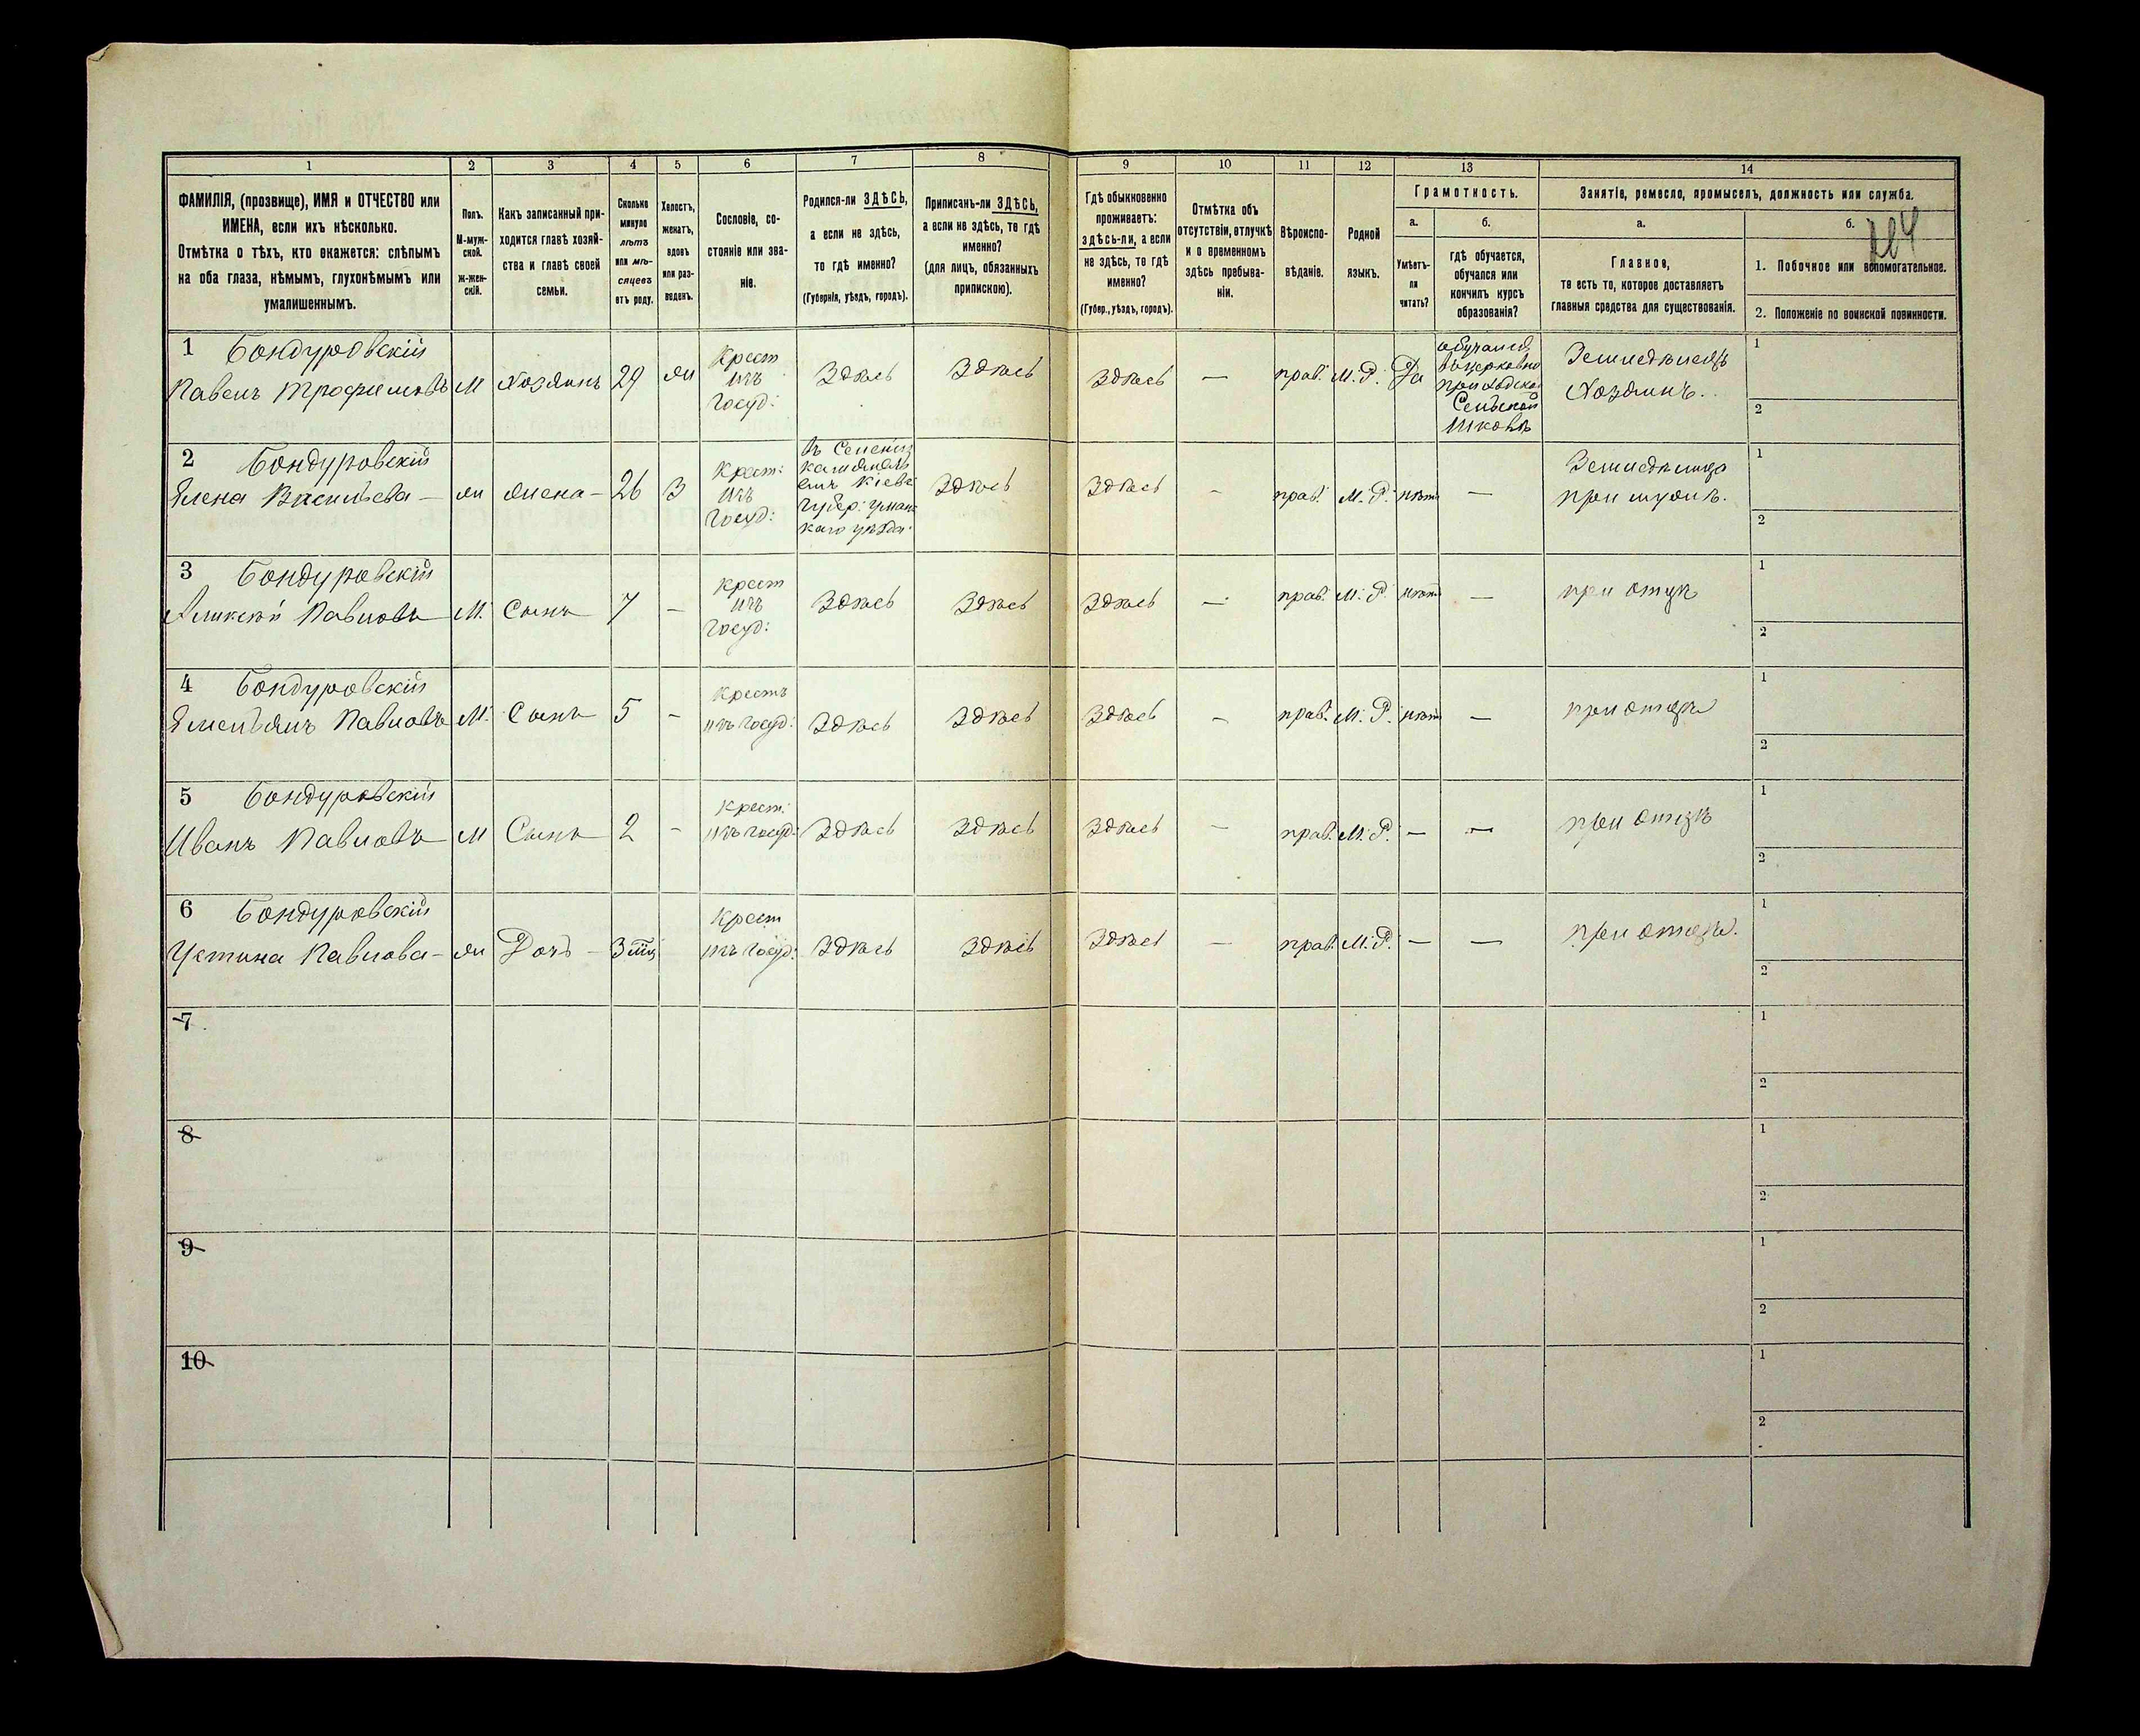 1 2 3 4 5 6 7 8 9 10 11 12 13 14
ФАМИЛІЯ, (прозвище), ИМЯ и ОТЧЕСТВО или
ИМЕНА, если ихъ нѣсколько.
Отмѣтка о тѣхъ, кто окажется: слѣпымъ
на оба глаза, нѣмымъ, глухонѣмымъ или
умалишеннымъ.
Полъ.
М-муж-
ской.
ж-жен-
скій.
Какъ записанный при-
ходится главѣ хозяй-
ства и главѣ своей
семьи.
Сколько
минуло
лѣтъ
или мѣ-
сяцевъ
отъ роду.
Холостъ,
женатъ,
вдовъ
или раз-
веденъ.
Сословіе, со-
стояніе или зва-
ніе.
Родился-ли ЗДѢСЬ,
а если не здѣсь,
то гдѣ именно?
(Губернія, уѣздъ, городъ).
Приписанъ-ли ЗДѢСЬ,
а если не здѣсь, то гдѣ
именно?
(для лицъ, обязанныхъ
припискою).
Гдѣ обыкновенно
проживаетъ:
здѣсь-ли, а если
не здѣсь, то гдѣ
именно?
(Губер., уѣздъ, городъ).
Отмѣтка объ
отсутствіи, отлучкѣ
и о временномъ
здѣсь пребыва-
ніи.
Вѣроиспо-
вѣданіе.
Родной
языкъ.
Грамотность.
а.
Умѣетъ-
ли
читать?
б.
гдѣ обучается,
обучался или
кончилъ курсъ
образованія?
Занятіе, ремесло, промыселъ, должность или служба.
а.
Главное,
то есть то, которое доставляетъ
главныя средства для существованія.
б.
1. Побочное или вспомогательное.
2. Положеніе по воинской повинности.
1 Бондуровскій
Павелъ Трофимовъ
М
Хозяинъ
29
ж
Крест
изъ
Госуд:
Здѣсь
Здѣсь
Здѣсь
—
прав.
М. Р.
Да
обучался
въ церковно
приходско
Сельской
Школѣ
Земледѣлецъ
Хозяинъ.
1
2
2 Бондуровскій
Елена Васильева —
ж
жена —
26
З
Крест:
изъ
Госуд:
Кіевс
Губер: Уманс
каго уѣзда.
Здѣсь
Здѣсь
—
прав.
М. Р.
нѣтъ
—
при мужѣ.
1
2
3 Бондуровскій
Алексѣй Павловъ
М.
Сынъ
7
—
Крест
изъ
Госуд:
Здѣсь
Здѣсь
Здѣсь
—
прав.
М. Р.
нѣтъ
—
при отцѣ
1
2
4 Бондуровскій
Емельянъ Павловъ
М.
Сынъ
5
—
Крестъ
изъ Госуд:
Здѣсь
Здѣсь
Здѣсь
—
прав.
М. Р.
нѣтъ
—
при отцѣ
1
2
5 Бондуровскій
Иванъ Павловъ
М
Сынъ
2
—
Крест.
изъ Госуд:
Здѣсь
Здѣсь
Здѣсь
—
прав.
М. Р.
—
—
при отцѣ
1
2
6 Бондуровскій
Устина Павлова —
ж
Дочь —
3 мц
Крест
изъ Госуд:
Здѣсь
Здѣсь
Здѣсь
—
прав.
М. Р.
—
—
при отцѣ.
1
2
7
1
2
8
1
2
9
1
2
10
1
2